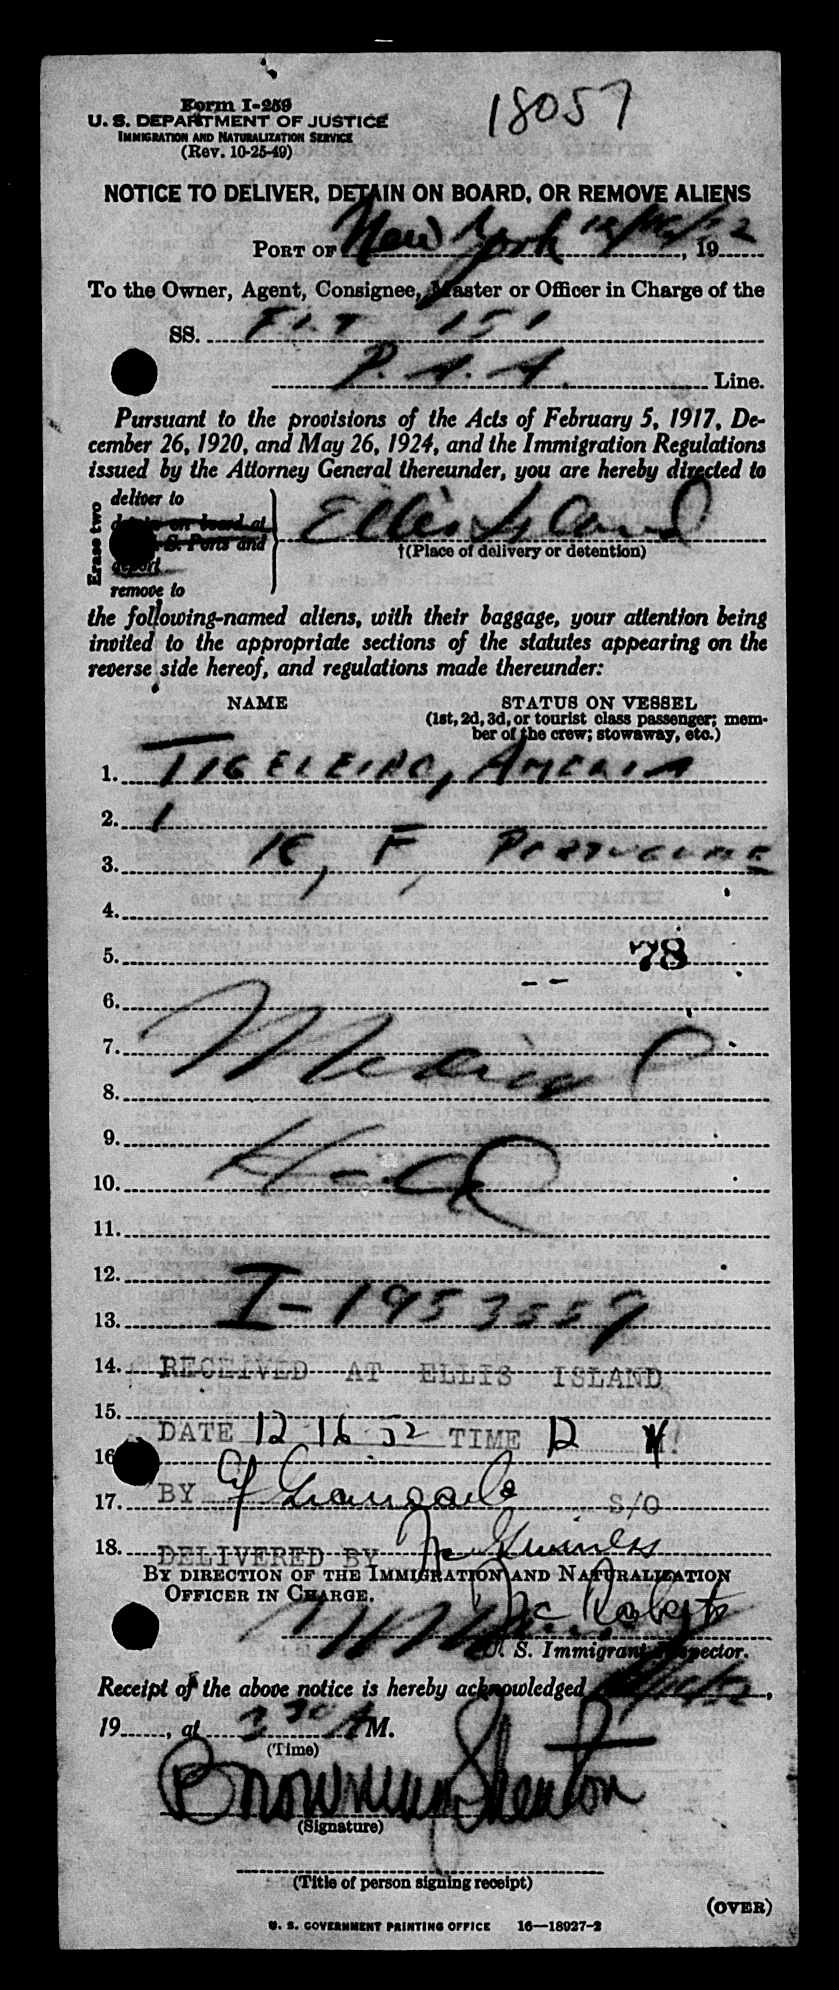 Form I-259
18057
U. S. DEPARTMENT OF JUSTICE
IMMIGRATION AND NATURALIZATION SERVICE
(Rev. 10-25-49)
NOTICE TO DELIVER, DETAIN ON BOARD, OR REMOVE ALIENS
PORT OF New York 12/16/52, 19
To the Owner, Agent, Consignee, Master or Officer in Charge of the
SS. FLT 151
P. A. A. Line.
Pursuant to the provisions of the Acts of February 5, 1917, De-
cember 26, 1920, and May 26, 1924, and the Immigration Regulations
issued by the Attorney General thereunder, you are hereby directed to
Erase two
deliver to
detain on board at
U. S. Ports and
deport
remove to
Ellis Island
†(Place of delivery or detention)
the following-named aliens, with their baggage, your attention being
invited to the appropriate sections of the statutes appearing on the
reverse side hereof, and regulations made thereunder:
NAME STATUS ON VESSEL
(1st, 2d, 3d, or tourist class passenger; mem-
ber of the crew; stowaway, etc.)
1. TIGELEIRO,
2.
3. F, PORTUGUESE
4.
5. 78
6.
7.
8. Medical
9.
10.
11.
12.
13. I-1953559
14. RECEIVED AT ELLIS ISLAND
15.
DATE 12 16 52 TIME 12 M
16.
17. BY S/O
18. DELIVERED BY McGuiness
BY DIRECTION OF THE IMMIGRATION AND NATURALIZATION
OFFICER IN CHARGE.
U. S. Immigrant Inspector.
Receipt of the above notice is hereby acknowledged
19, at 3 30 AM.
(Time)
Browning Shenton
(Signature)
(Title of person signing receipt)
(OVER)
U. S. GOVERNMENT PRINTING OFFICE 16—18927-2